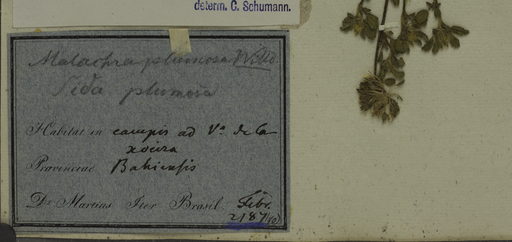 determ. C. Schumann.
Malachra plumosa Willd
Sida plumosa
Habitat in campis ad Vª. de Ca
xoeira
Provinciae Bahiensis
Dr Martius Iter Brasil. Febr.
2187